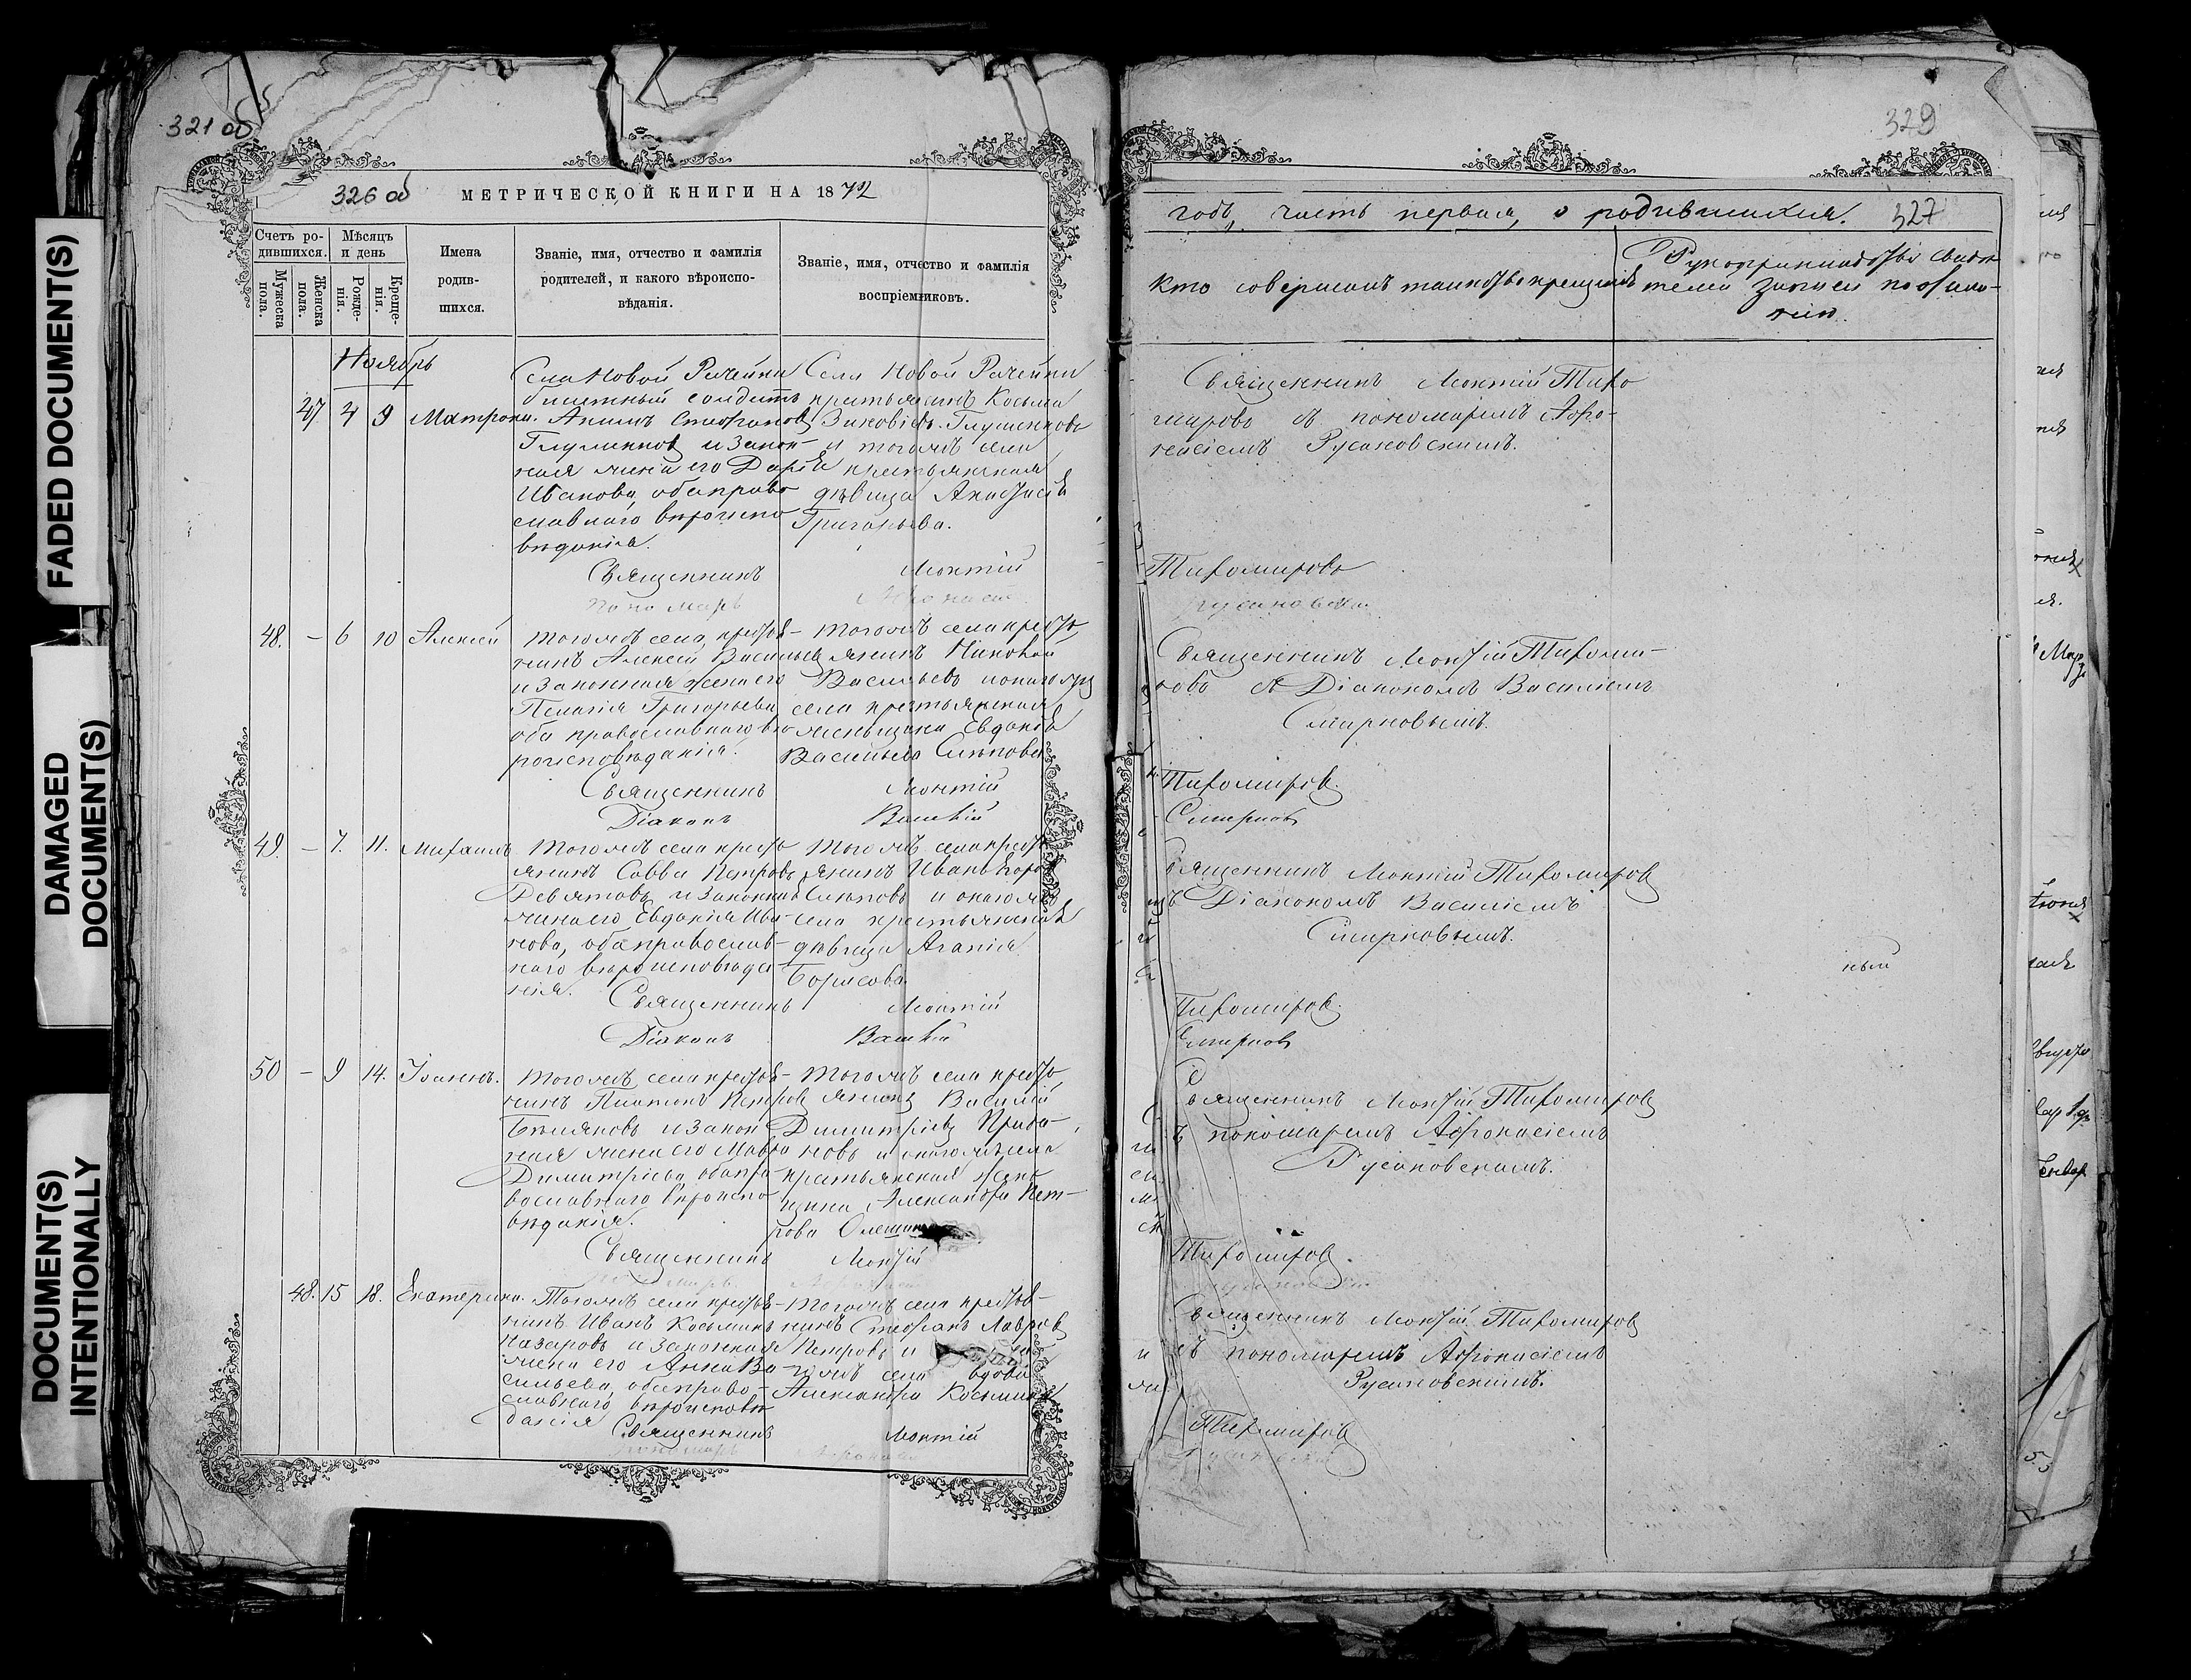 FADED DOCUMENT(S)
DAMAGED
DOCUMENT(S)
DOCUMENT(S)
INTENTIONALLY
321 об
326 об
МЕТРИЧЕСКОЙ КНИГИ НА 1872
Счетъ ро-
дившихся.
Мужеска
пола.
Женска
пола.
Мѣсяцъ
и день
Рожде-
нія.
Креще-
нія.
Имена
родив-
шихся.
Званіе, имя, отчество и фамилія
родителей, и какого вѣроиспо-
вѣданія.
Званіе, имя, отчество и фамилія
воспріемниковъ.
Ноябрь
47 4 9 Матрона.
Села Новой Рачейки
билетный солдатъ
Акимъ Стефановъ
и закон-
ная жена его Дарія
Иванова, оба право
славнаго вѣроиспо
вѣданія.
Села Новой Рачейки
крестьянинъ Косьма
Зиновіевъ Глушенковъ
и тогожъ села
крестьянская
дѣвица Анастасія
Григорьева.
Священникъ Монтій
Пономарь
48. – 6 10 Алексей
Тогожъ села, крестья-
нинъ Алексей Васильевъ
и законная жена его
Пелагія Григорьева
оба православнаго вѣ
роисповѣданія.
Тогожъ села кресть
янинъ
Васильевъ
села крестьянская
женщина Евдокія
Васильева
Священникъ Монтій
Діаконъ Василій
49. – 7. 11. Михаилъ
Тогожъ села кресть
янинъ Савва Петровъ
Девятовъ и законная
жена его Евдокія Ива-
нова, оба православ-
наго вѣроисповѣда
нія.
Тогожъ села кресть
янинъ Иванъ
и
села крестьянская
дѣвица Агапія
Борисова.
Священникъ Монтій
Діаконъ Василій
50 – 9 14. Іоаннъ.
Тогожъ села крестья-
нинъ Платонъ Петровъ
Бѣляковъ и закон
ная жена его Мавра
Димитріева, оба пра
вославнаго вѣроиспо
вѣданія.
Тогожъ села кресть
янинъ Василій
Димитріевъ
и
крестьянская жен
щина Александра Пет-
рова
Священникъ Монтій
48. 15 18. Екатерина.
Тогожъ села крестья-
нинъ Иванъ Косьминъ
Назаровъ и законная
жена его Анна Ва
сильева, оба право-
славнаго вѣроисповѣ
данія
Тогожъ села крестья-
нинъ Стефанъ Лавровъ
Петровъ и
села вдова
Александра Косьмина
Священникъ Монтій
Пономарь
329
годъ, часть первая, о родившихся. 327
Кто совершалъ таинство крещенія
Рукоприкладство свидѣ
телей записи по жела-
нію.
Священникъ Монтій Тихо
мировъ съ пономаремъ Афа-
насіемъ Русановскимъ.
Тихомировъ
Русановскій
Священникъ Монтій Тихоми-
ровъ съ Діакономъ Василіемъ
Смирновымъ.
Тихомировъ.
Смирновъ
Священникъ Монтій Тихомировъ
съ Діакономъ Василіемъ
Смирновымъ.
ный
Тихомировъ
Смирновъ
Священникъ Монтій Тихомировъ
съ пономаремъ Афанасіемъ
Русановскимъ.
Тихомировъ.
Священникъ Монтій Тихомировъ
съ пономаремъ Афанасіемъ
Русановскимъ.
Тихомировъ